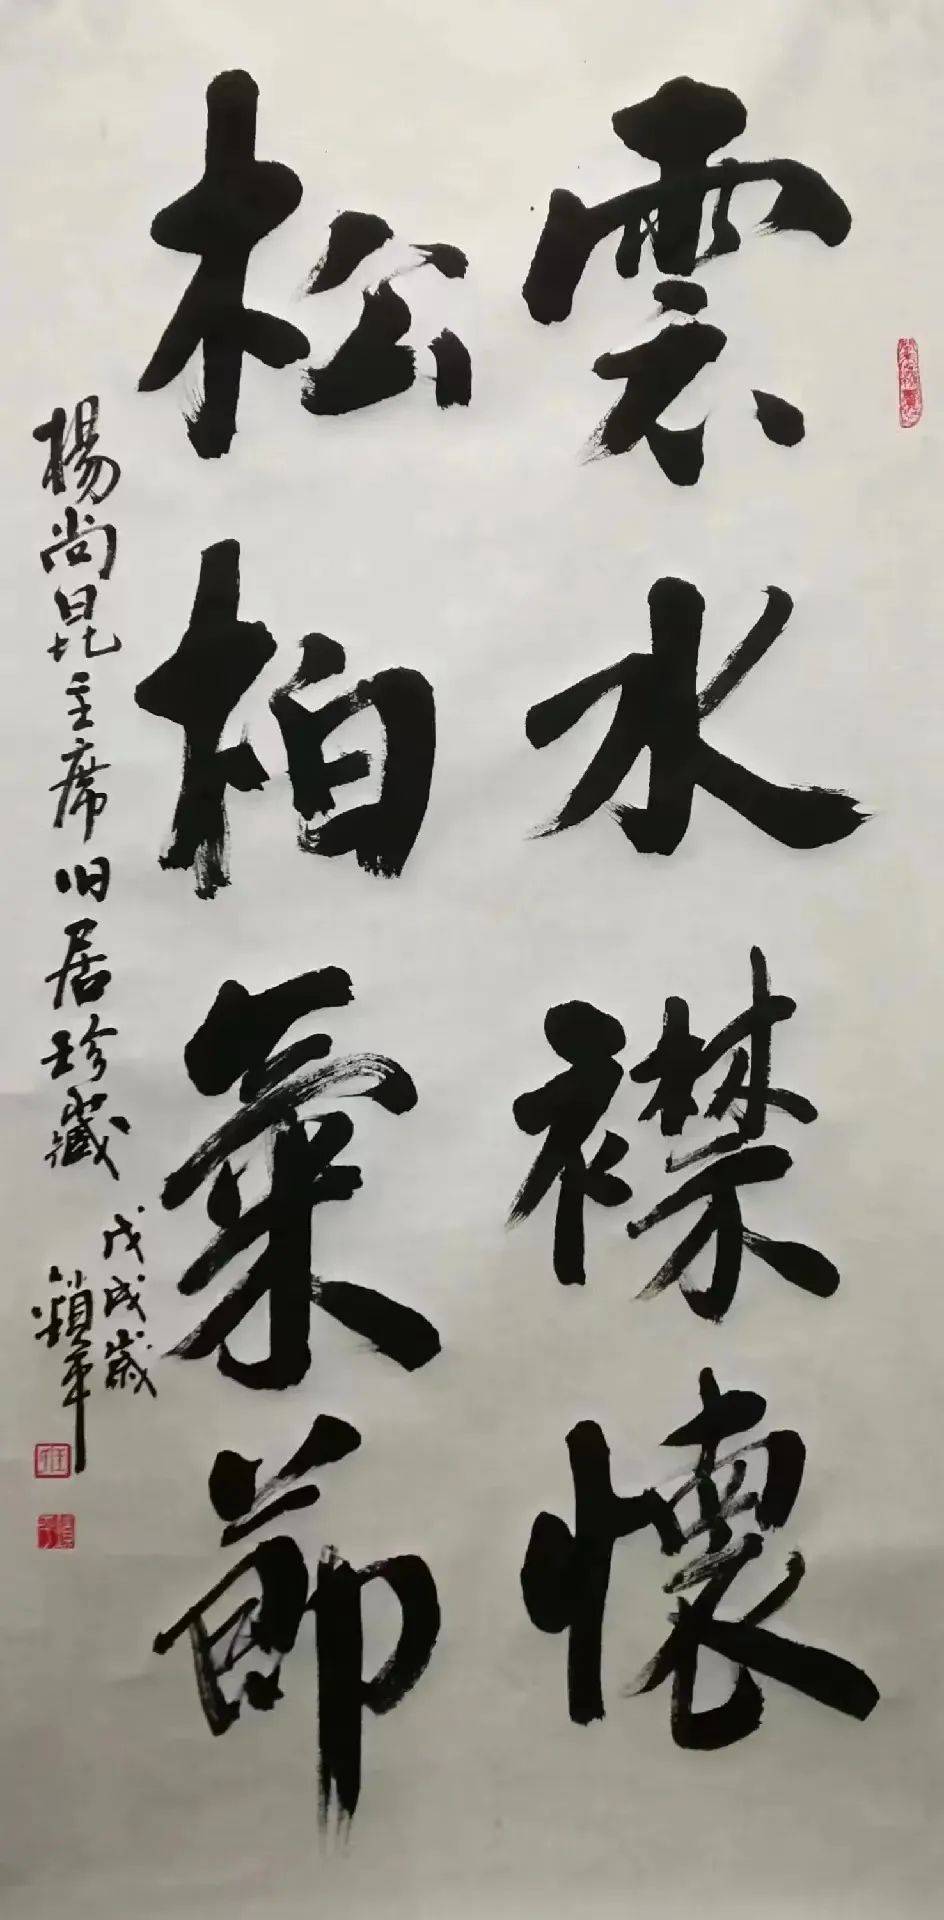 雲水襟懷
松柏氣節
楊尚昆主席旧居珍藏
戊戌歳
鎖平